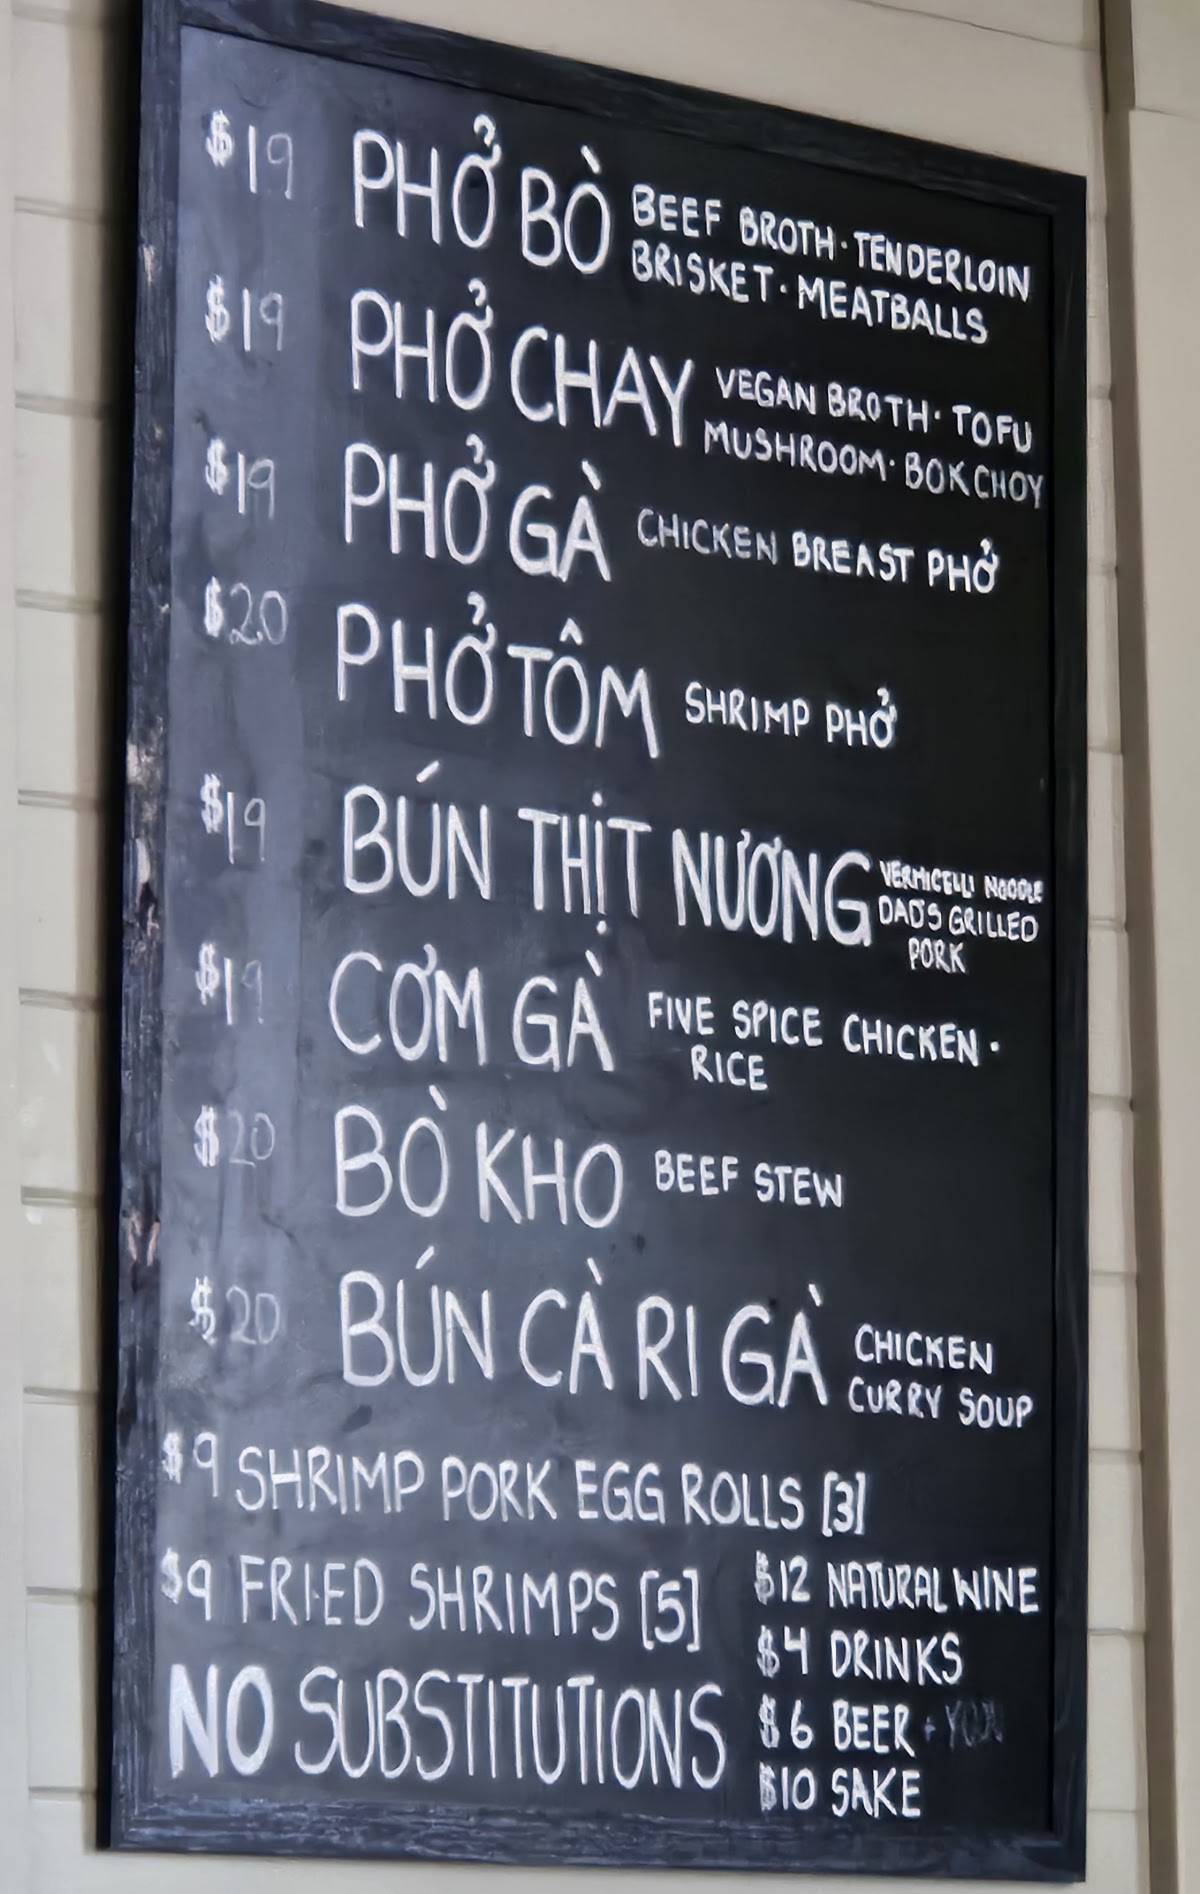 $19 PHỞ BÒ BEEF BROTH · TENDERLOIN
BRISKET · MEATBALLS
$19 PHỞ CHAY VEGAN BROTH · TOFU
MUSHROOM · BOK CHOY
$19 PHỞ GÀ CHICKEN BREAST PHỞ
$20 PHỞ TÔM SHRIMP PHỞ
$19 BÚN THỊT NƯƠNG VERMICELLI NOODLE
DAD'S GRILLED
PORK
$19 CƠM GÀ FIVE SPICE CHICKEN ·
RICE
$20 BÒ KHO BEEF STEW
$20 BÚN CÀ RI GÀ CHICKEN
CURRY SOUP
$9 SHRIMP PORK EGG ROLLS [3]
$9 FRIED SHRIMPS [5]
NO SUBSTITUTIONS
$12 NATURAL WINE
$4 DRINKS
$6 BEER
$10 SAKE